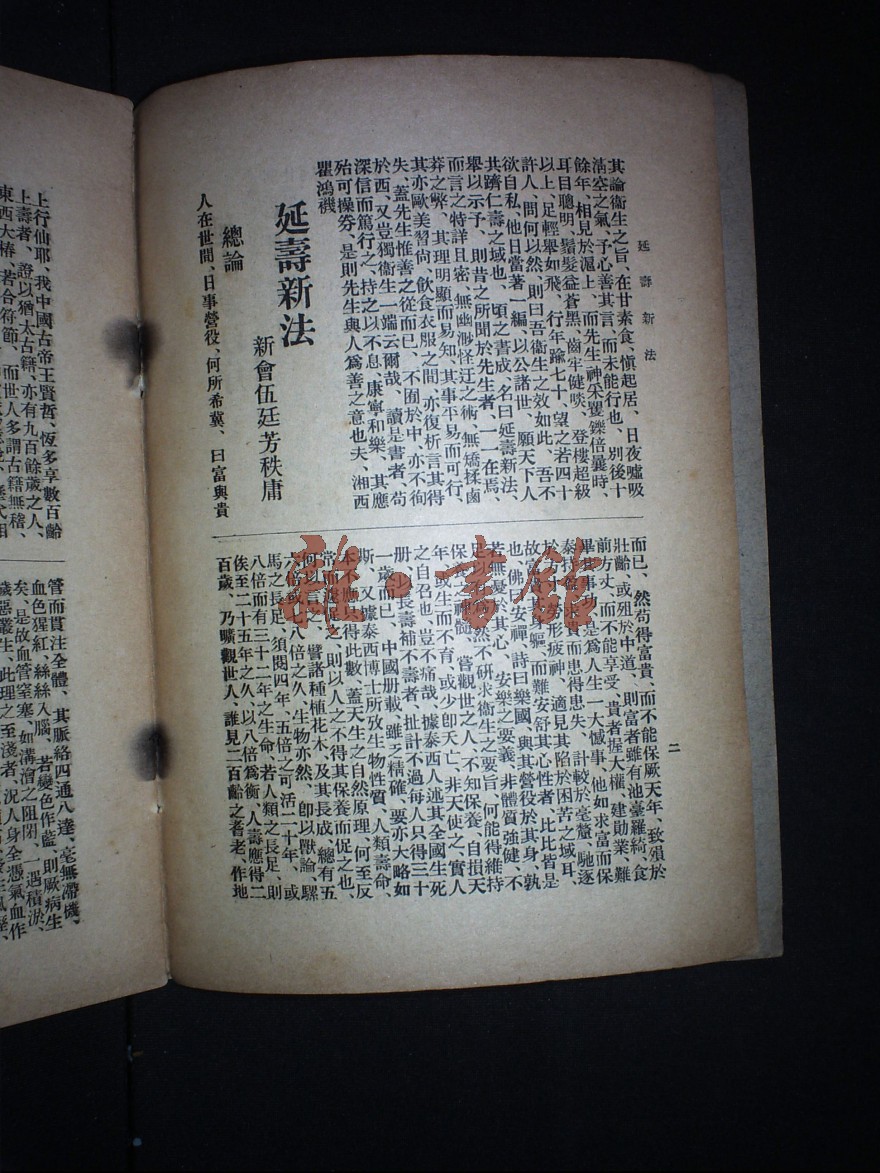 延壽新法
二
其論衞生之旨、在甘素食、愼起居、日夜噓吸
淸空之氣、予心善其言、而未能行也、別後十
餘年、相見於滬上、而先生神采矍鑠倍曩時、
耳目聰明、鬚髮益蒼黑、齒牢健啖、登樓超級
以上、足輕舉如飛、行年踰七十、望之若四十
許人、問何以然、則曰吾衞生之效如此、吾不
欲自私、他日當著一編、以公諸世、願天下人
共躋仁壽之域也、頃之書成、名曰延壽新法、
舉以示予、則昔之所聞於先生者、一一在焉、
而言之特詳且密、無幽渺怪迂之術、無矯揉鹵
莽之弊、其理明顯而易知、其事平易而可行、
其亦歐美習尙、飲食衣服之間、亦復析言其得
失、蓋先生惟善之從而已、不囿於中、亦不徇
於西、又豈獨衞生一端云爾哉、讀是書者、苟
深信而篤行之、持之以不息、康寧和樂、其應
殆可操券、是則先生與人爲善之意也夫、湘西
瞿鴻禨
延壽新法
新會伍廷芳秩庸
總論
人在世間、日事營役、何所希冀、曰富與貴
而已、然苟得富貴、而不能保厥天年、致殞於
壯齡、或殂於中道、則富者雖有池臺羅綺、食
前方丈、而不能享受、貴者握大權、建勛業、難
畢其事功、是爲人生一大憾事、他如求富而保
泰持盈、求貴而患得患失、計較於毫釐、馳逐
於方寸、勞形疲神、適見其陷於困苦之域耳、
故富貴者身軀、而難安舒其心性者、比比皆是
也、佛曰安禪、詩曰樂國、與其營役於其身、孰
若無憂於其心、安樂之要義、非體質強健、不
足以致、然不研求衞生之要旨、何能得維持
保養之神髓、嘗觀世之人、不知保養、自損天
年、或生而不育、或少卽夭亡、非天使之、實人
之自召也、豈不痛哉、據泰西人述其全國生死
册、斗長壽補不壽者、扯計不過每人只得三十
一歲而已、中國册載、雖乏精確、要亦大略如
斯、又據泰西博士所攷生物性質、人類壽命、
本不應只得此數、蓋天生之自然原理、何至反
常而促之、則以人之不得其保養而促之也、
何以言之、譬諸種植花木、及其長成、總有五
六倍或七八倍之久、生物亦然、卽以獸論、騾
馬之長足、須閱四年、五倍之可活二十年、或
八倍而有三十二年之生命、若人類之長足、則
俟至二十五年之久、以八倍爲衡、人壽應得二
百歲、乃曠觀世人、誰見二百齡之耆老、作地
上行仙耶、我中國古帝王賢哲、恆多享數百齡
上壽者、證以猶太古籍、亦有九百餘歲之人、
東西大椿、若合符節、而世人多謂古籍無稽、
管而貫注全體、其脈絡四通八達、毫無滯機、
血色猩紅、絲絲入腦、若變色作藍、則厥病生
矣、是故血管窒塞、如溝澮之阻閉、一遇積淤、
穢惡叢生、此理之至淺者、況人身全憑氣血作
雜·書館